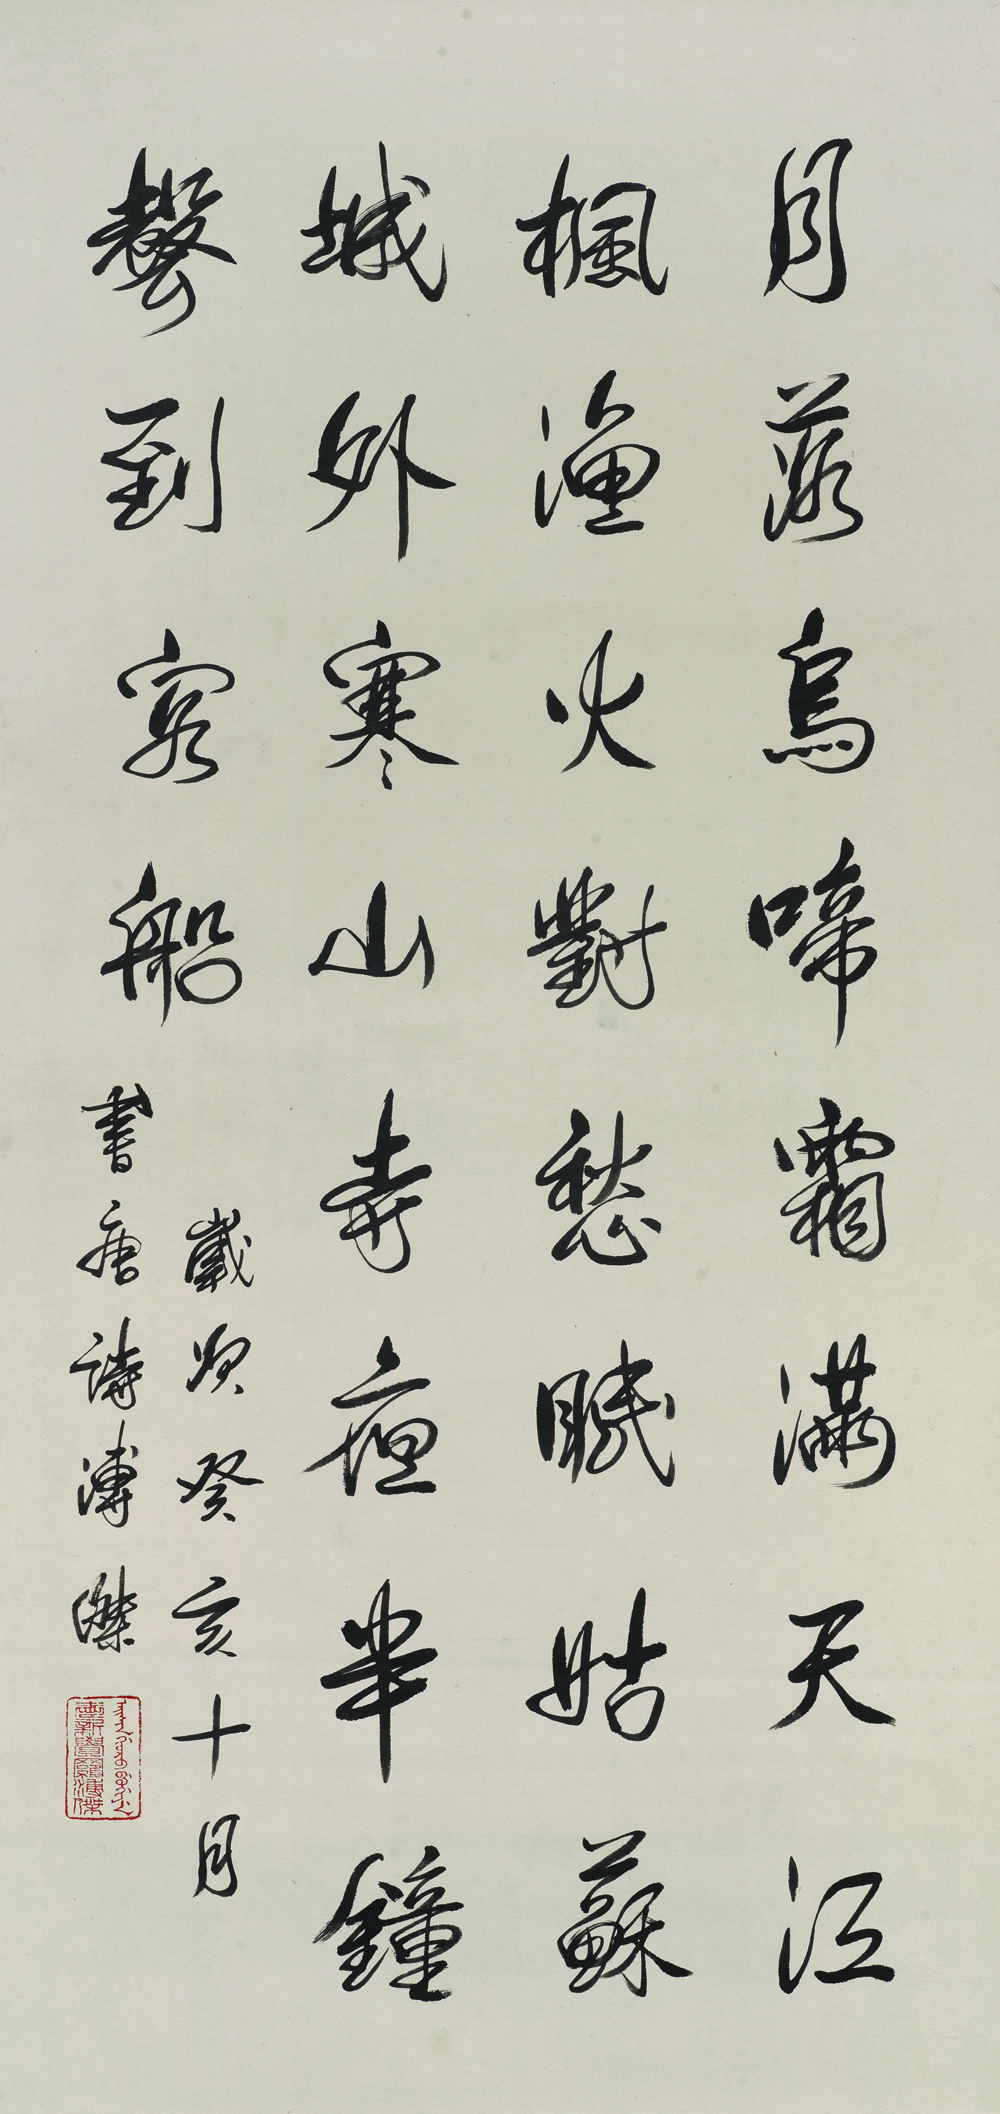 月落烏啼霜滿天江
楓漁火對愁眠姑蘇
城外寒山寺夜半鐘
聲到客船
歲次癸亥十月
書唐詩溥傑
愛新覺羅溥傑